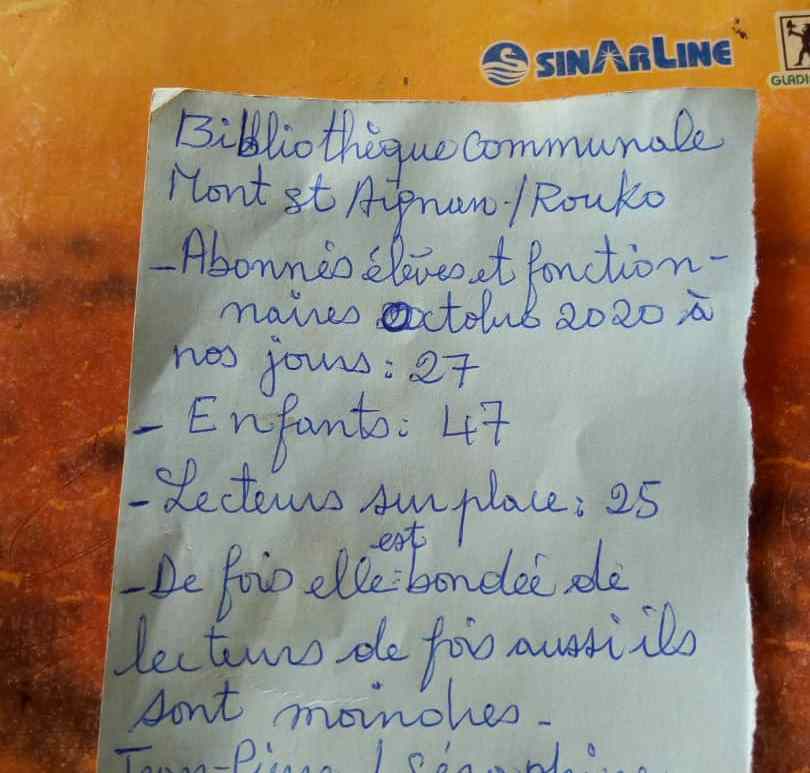 SINARLINE
GLADI
Bibliothèque communale
Mont st Aignan/Rouko
- Abonnés élèves et fonction-
naires Octobre 2020 à
nos jours : 27
- Enfants : 47
- Lecteurs sur place : 25
est
- De fois elle bondée de
lecteurs de fois aussi ils
sont moindres -
Jean-Pierre / Séraphine